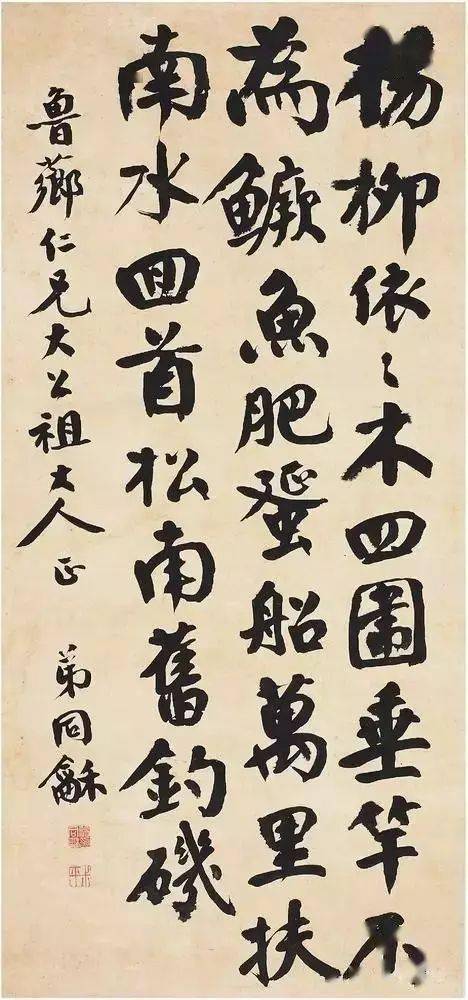 楊柳依〻木四圍垂竿不
為鱖魚肥蜑船萬里扶
南水回首松南舊釣磯
魯薌仁兄大公祖大人正 弟同龢
叔平